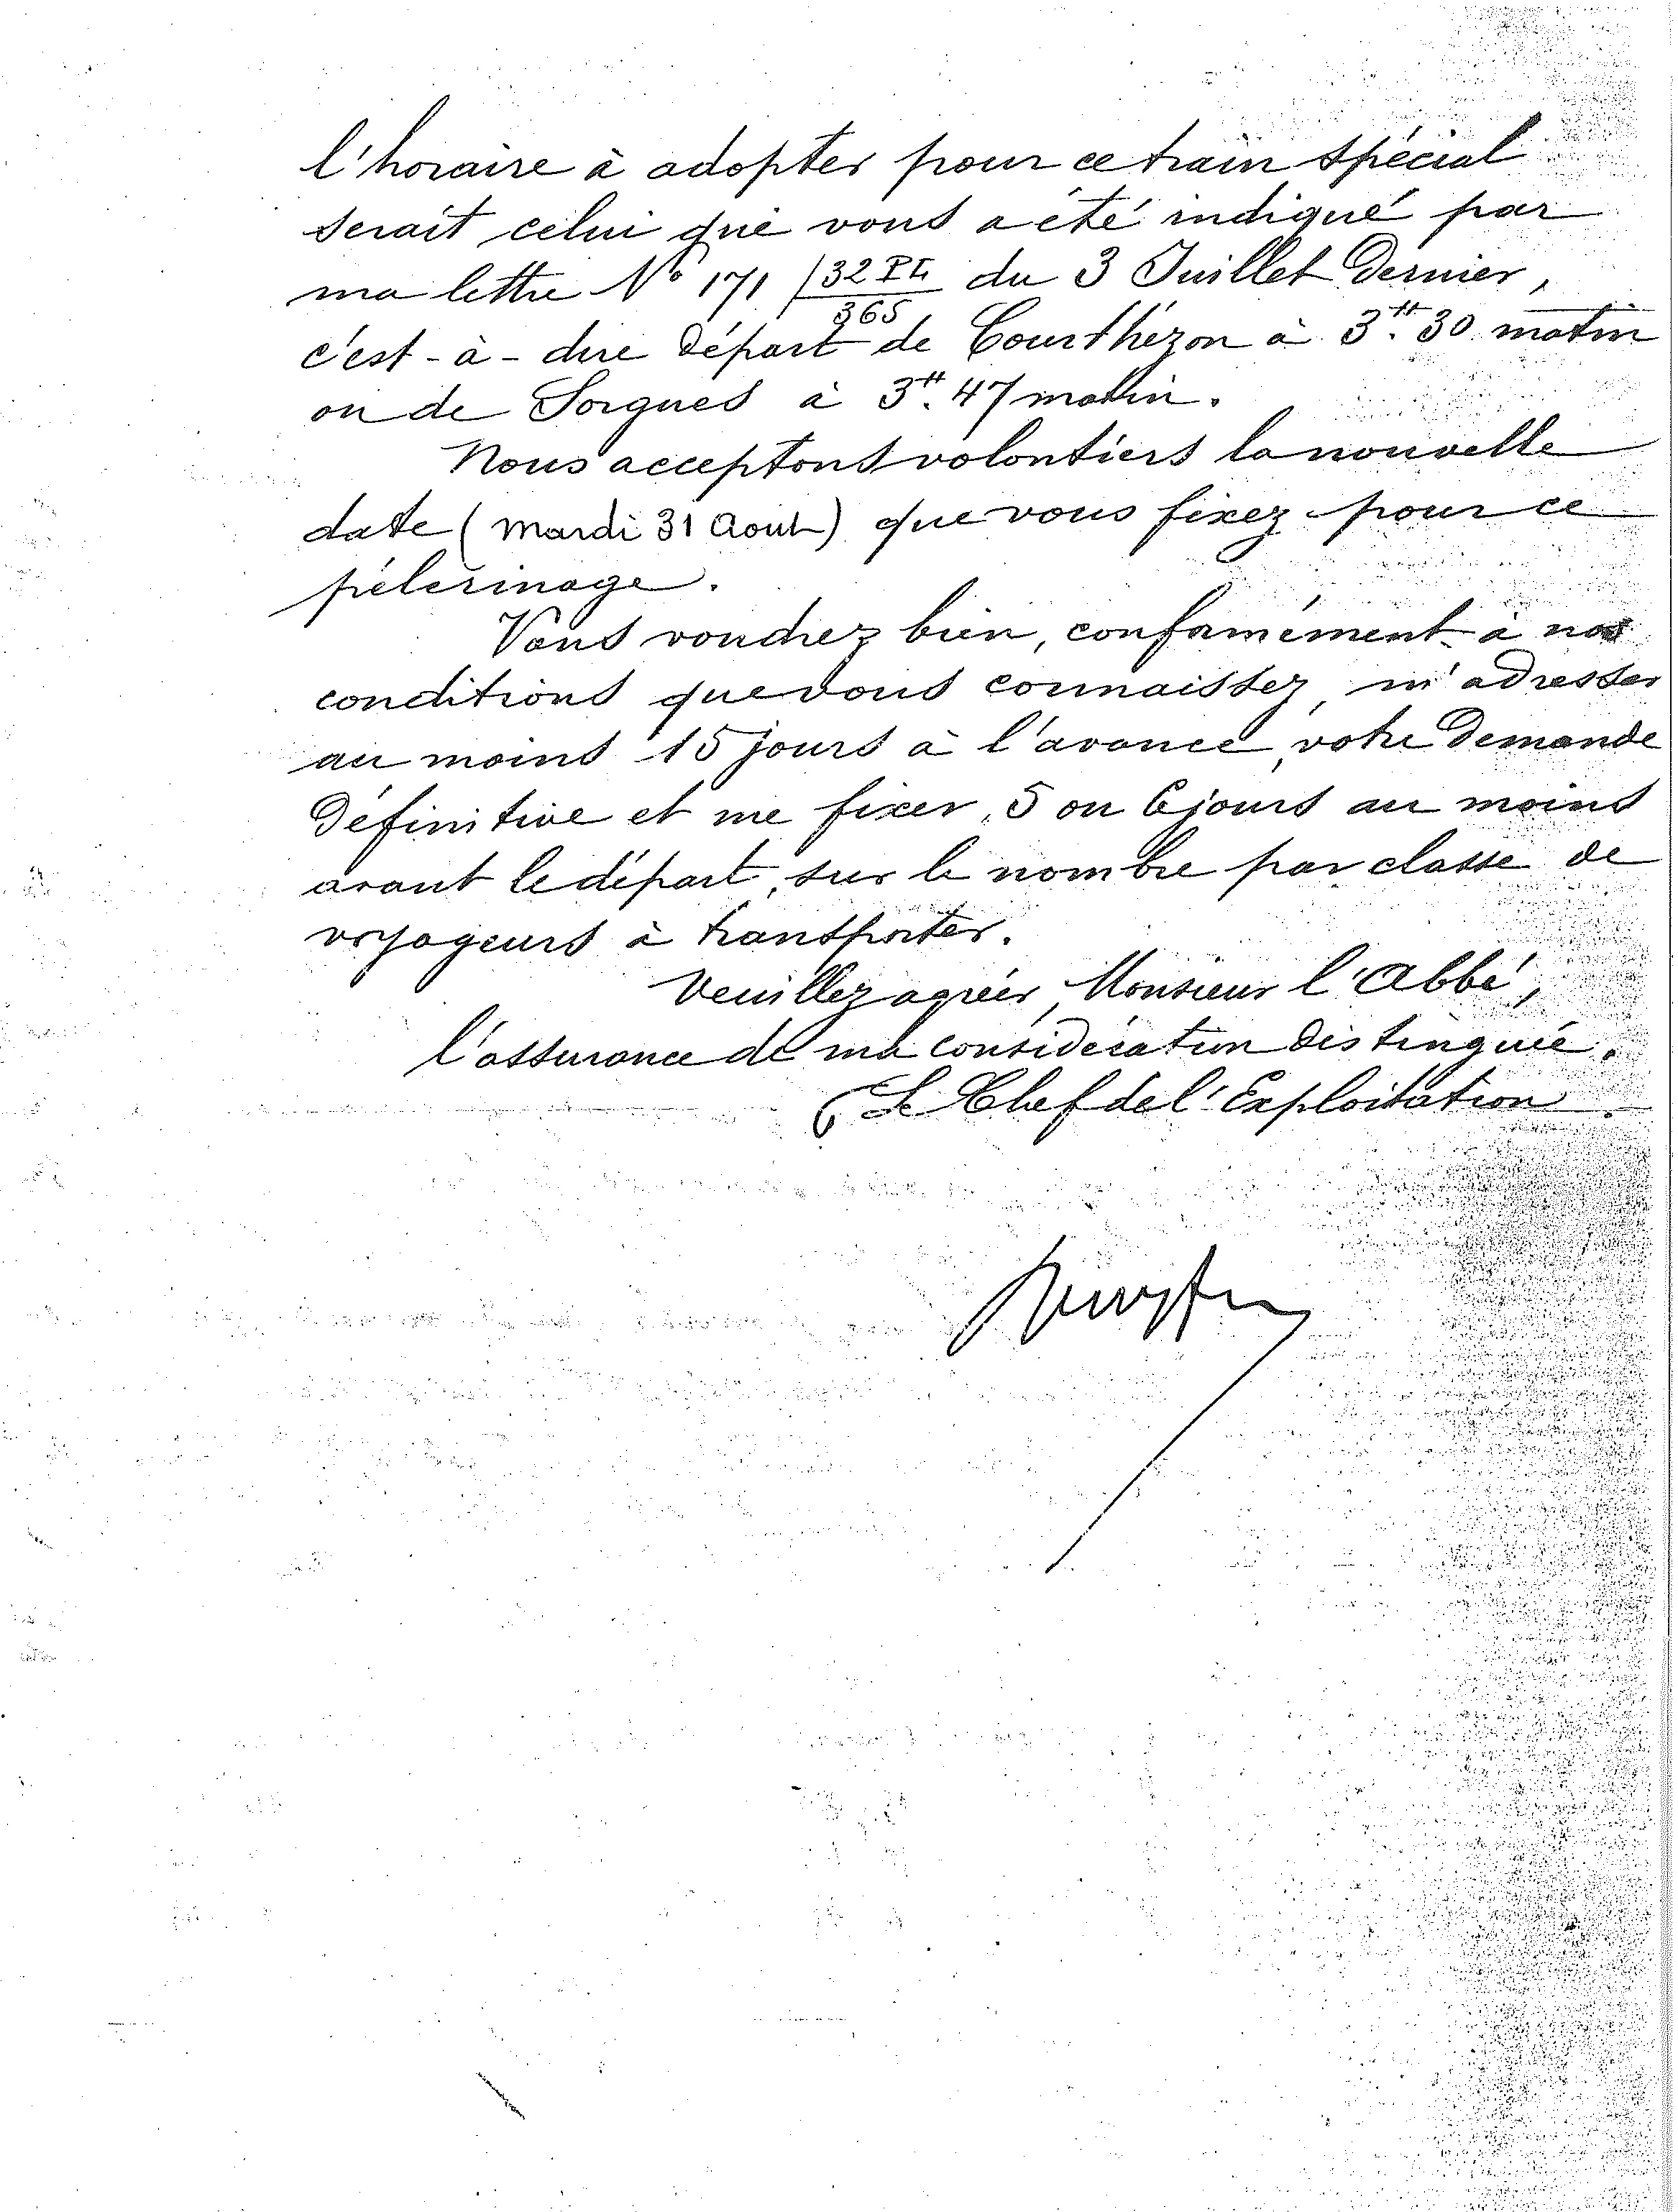 l'horaire à adopter pour ce train spécial
serait celui qui vous a été indiqué par
ma lettre N° 171 / 32
365
du 3 Juillet dernier,
c'est-à-dire départ de Courthézon à 3H.30 matin
ou de Sorgues à 3H.47 matin.
Nous acceptons volontiers la nouvelle
date (Mardi 31 Aout) que vous fixez pour ce
pélerinage.
Vous voudrez bien, conformément à nos
conditions que vous connaissez, m'adresser
au moins 15 jours à l'avance, votre demande
définitive et me fixer, 5 ou 6 jours au moins
avant le départ, sur le nombre par classe de
voyageurs à transporter.
Veuillez agréer, Monsieur l'Abbé,
l'assurance de ma considération distinguée.
Le Chef de l'Exploitation